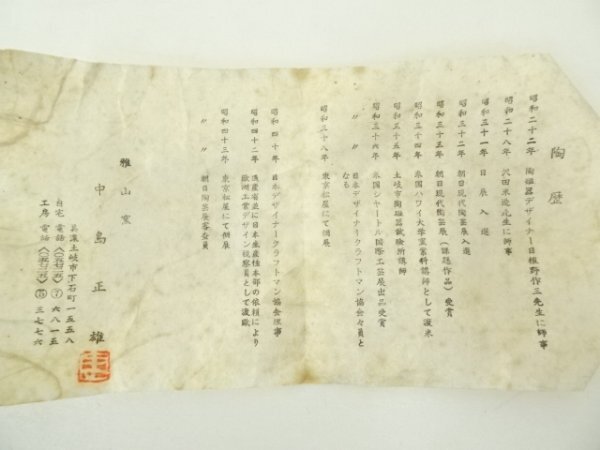 陶歴
昭和二十二年 陶磁器デザイナー日根野作三先生に師事
昭和二十八年 沢田米造先生に師事
昭和三十一年 日展入選
昭和三十二年 朝日現代陶芸展入選
昭和三十三年 朝日現代陶芸展(課題作品)受賞
昭和三十四年 米国ハワイ大学窯業科講師として渡米
昭和三十五年 土岐市陶磁器試験所講師
昭和三十六年 米国シヤートル国際工芸展出品受賞
〃 〃 日本デザイナークラフトマン協会々員と
なる
昭和三十八年 東京松屋にて個展
昭和四十年 日本デザイナークラフトマン協会理事
昭和四十二年 通産省並に日本生産性本部の依頼により
欧洲工業デザイン視察員として渡欧
昭和四十三年 東京松屋にて個展
〃 〃 朝日陶芸展審査員
雅山窯
中島正雄
岐阜県土岐市下石町一五五八
自宅 電話 ⑦六八一五
工房 電話 三七七六